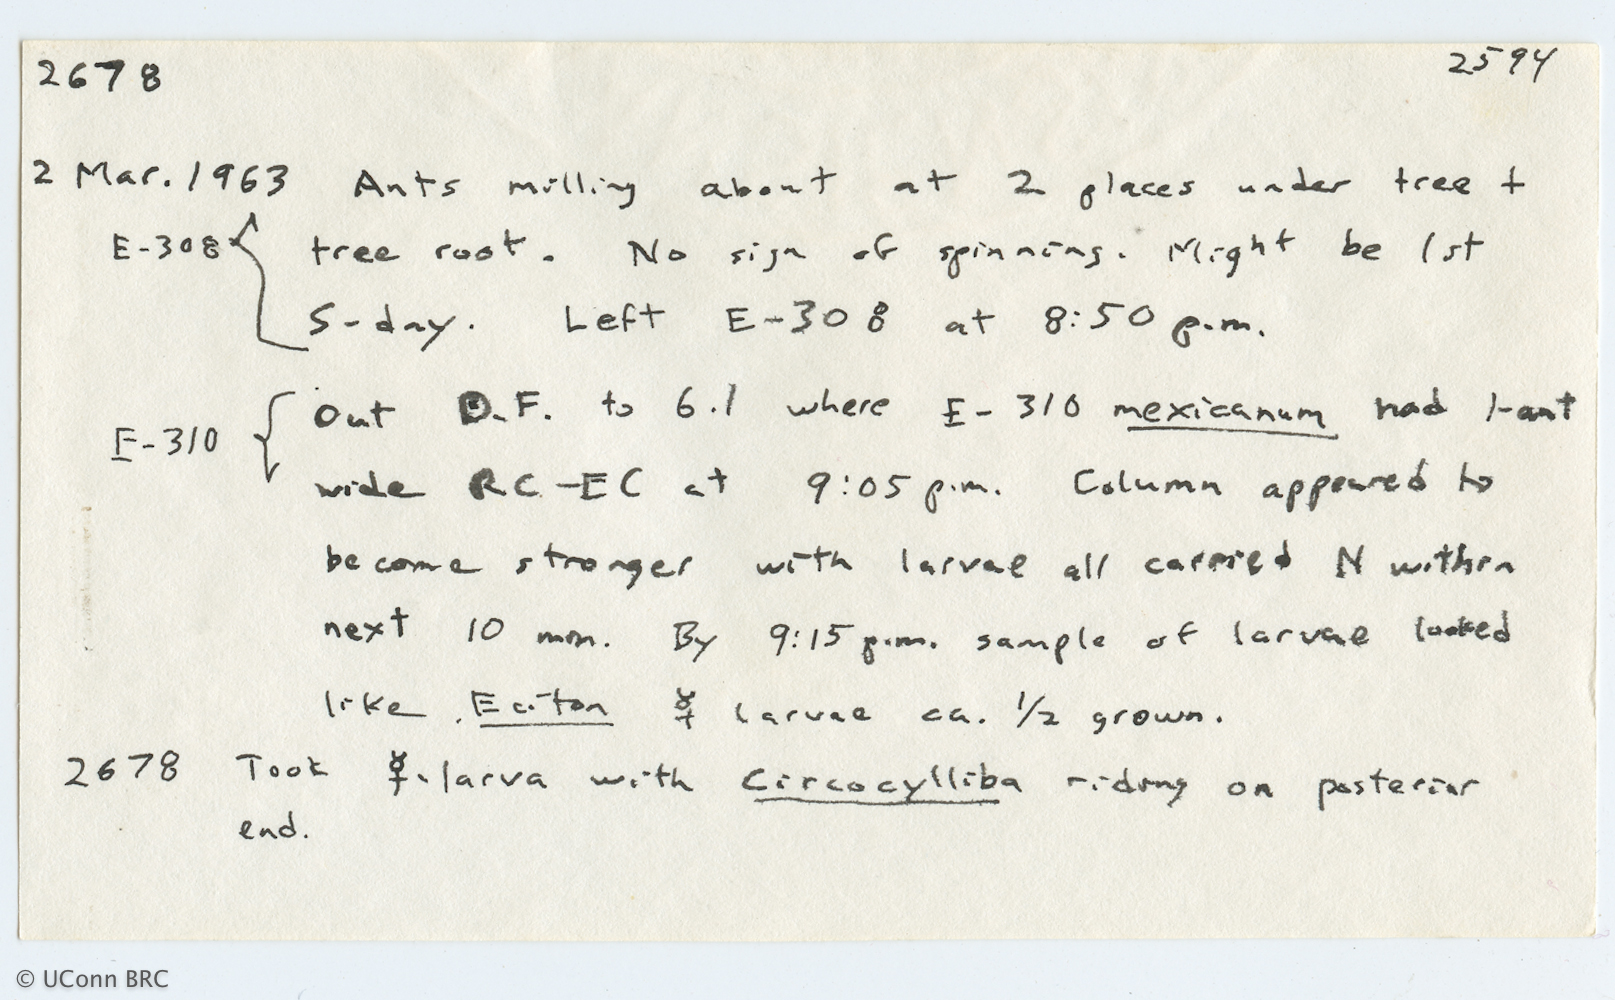 2678 2594
2 Mar. 1963 Ants milling about at 2 places under tree +
E-308 { tree root. No sign of spinning. Might be 1st
S-day. Left E-308 at 8:50 p.m.
Out D.F. to 6.1 where E-310 mexicanum had 1-ant
E-310 { wide RC-EC at 9:05 p.m. Column appeared to
become stronger with larvae all carried N within
next 10 min. By 9:15 p.m. sample of larvae looked
like Eciton ☿ larvae ca. 1/2 grown.
2678 Took ☿-larva with Circocylliba riding on posterior
end.
© UConn BRC